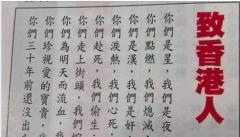 致香港人
你們是星，我們是夜
你們點燃，我們熄滅
你們是漢，我們是奸
你們淚熱，我們心死
你們赴死，我們偷生
你們走上街頭，我們
你們為明天而流血，我
你們珍視愛的寶貴，我
你們三十年前還沒出